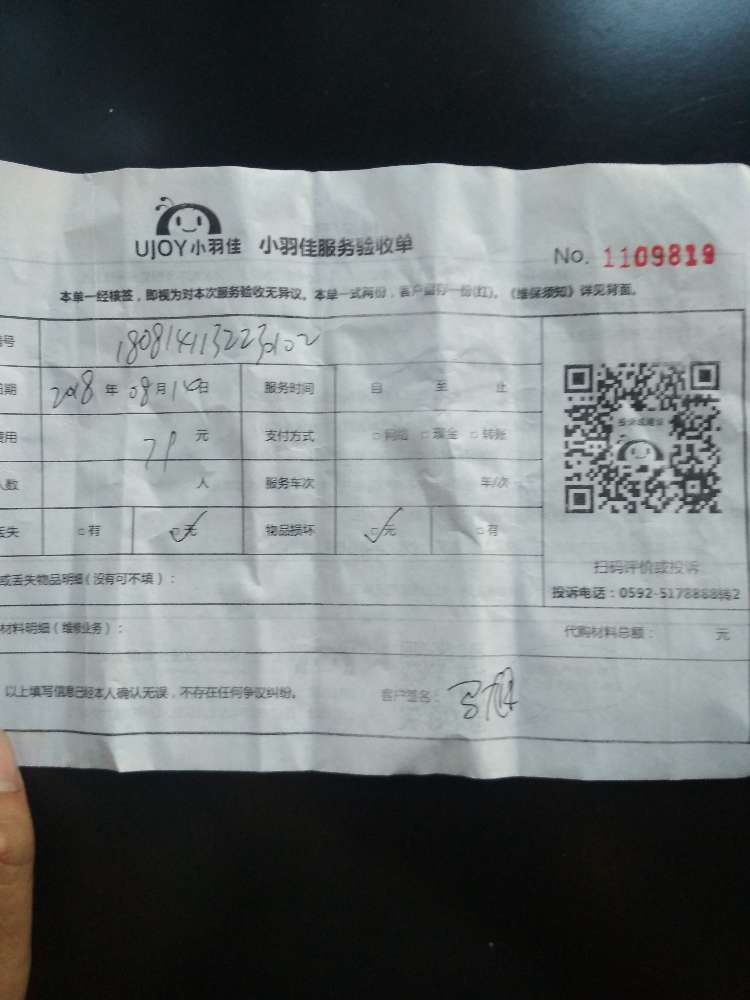 UJOY小羽佳 小羽佳服务验收单 No. 1109819
本单一经核签，即视为对本次服务验收无异议。本单一式两份，客户留存一份(红)。《维保须知》详见背面。
号 18081411322
期 2018 年 08 月 日 服务时间 自 至 止
费用 元 支付方式 □ 网络 □ 现金 □ 转账
人数 人 服务车次 车/次
丢失 □ 有 □ 无 物品损坏 □ 无 □ 有
投诉或建议
扫码评价或投诉
投诉电话：0592-5178888转2
或丢失物品明细(没有可不填)：
材料明细(维修业务)： 代购材料总额： 元
以上填写信息已经本人确认无误，不存在任何争议纠纷。 客户签名：